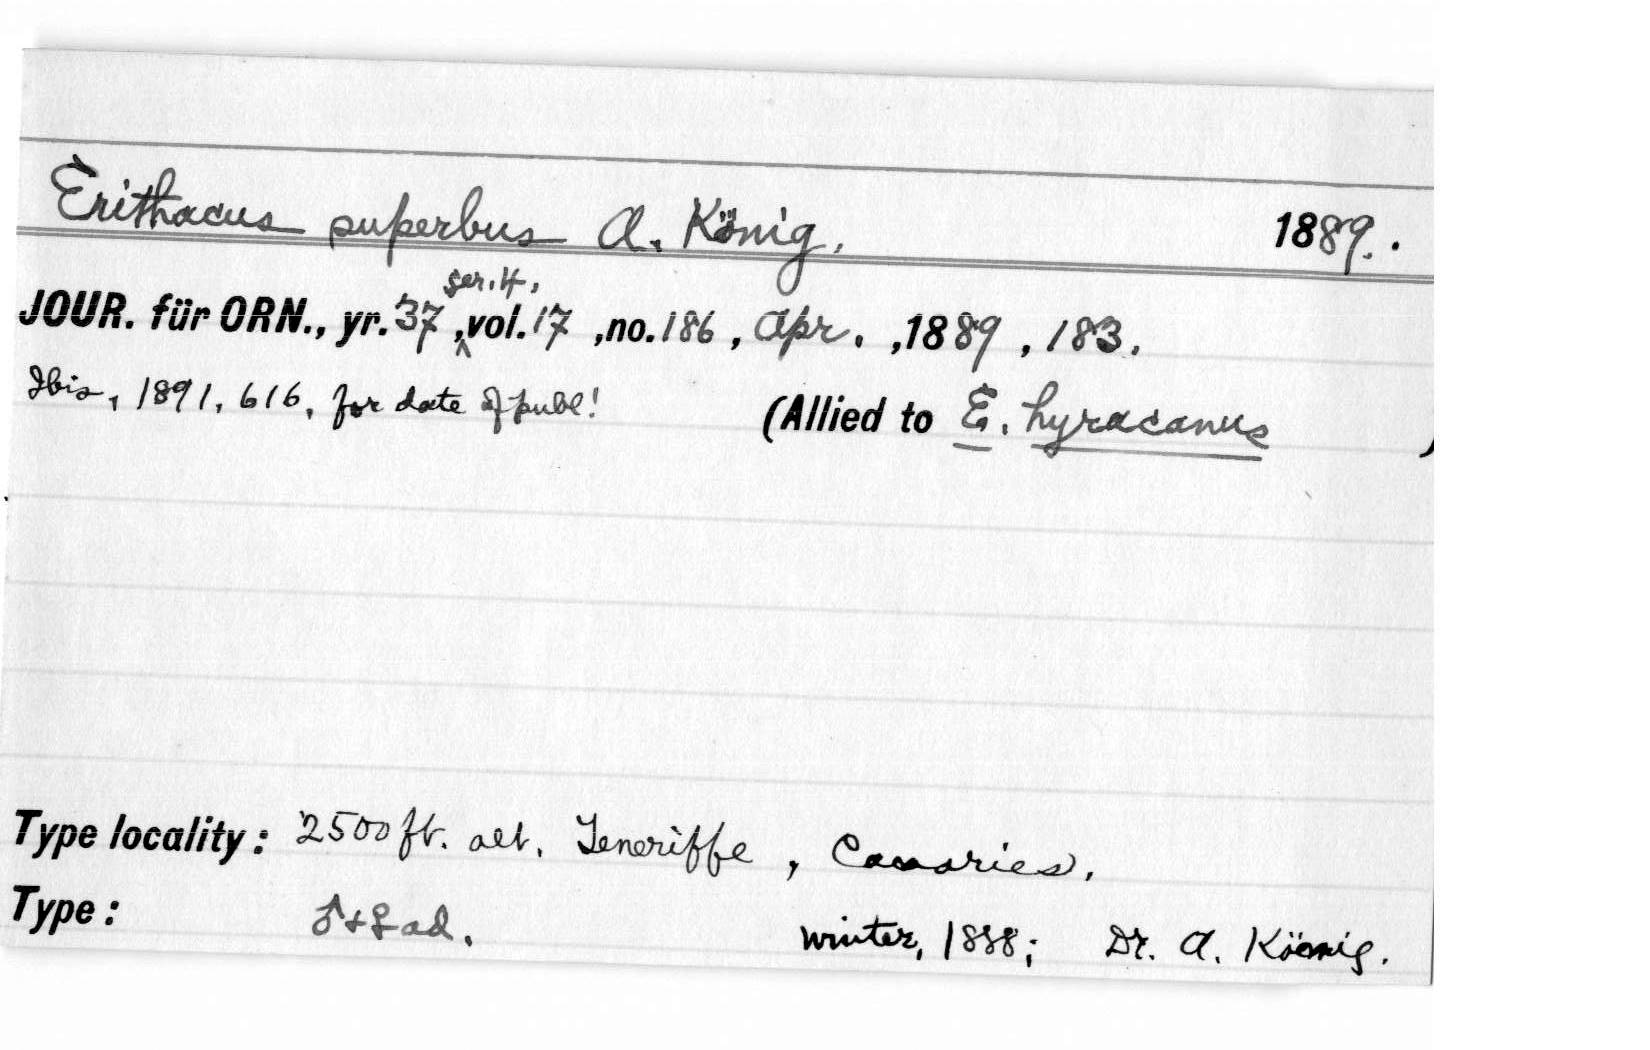 Erithacus superbus A. König, 1889.
ser. 4,
JOUR. für ORN., yr. 37, vol. 17, no. 186, Apr., 1889, 183.
Ibis, 1891, 616, for date of publ!
(Allied to E. hyrcanus)
Type locality: 2500 ft. alt. Teneriffe, Canaries.
Type: ♂+♀ ad. winter, 1888; Dr. A. König.